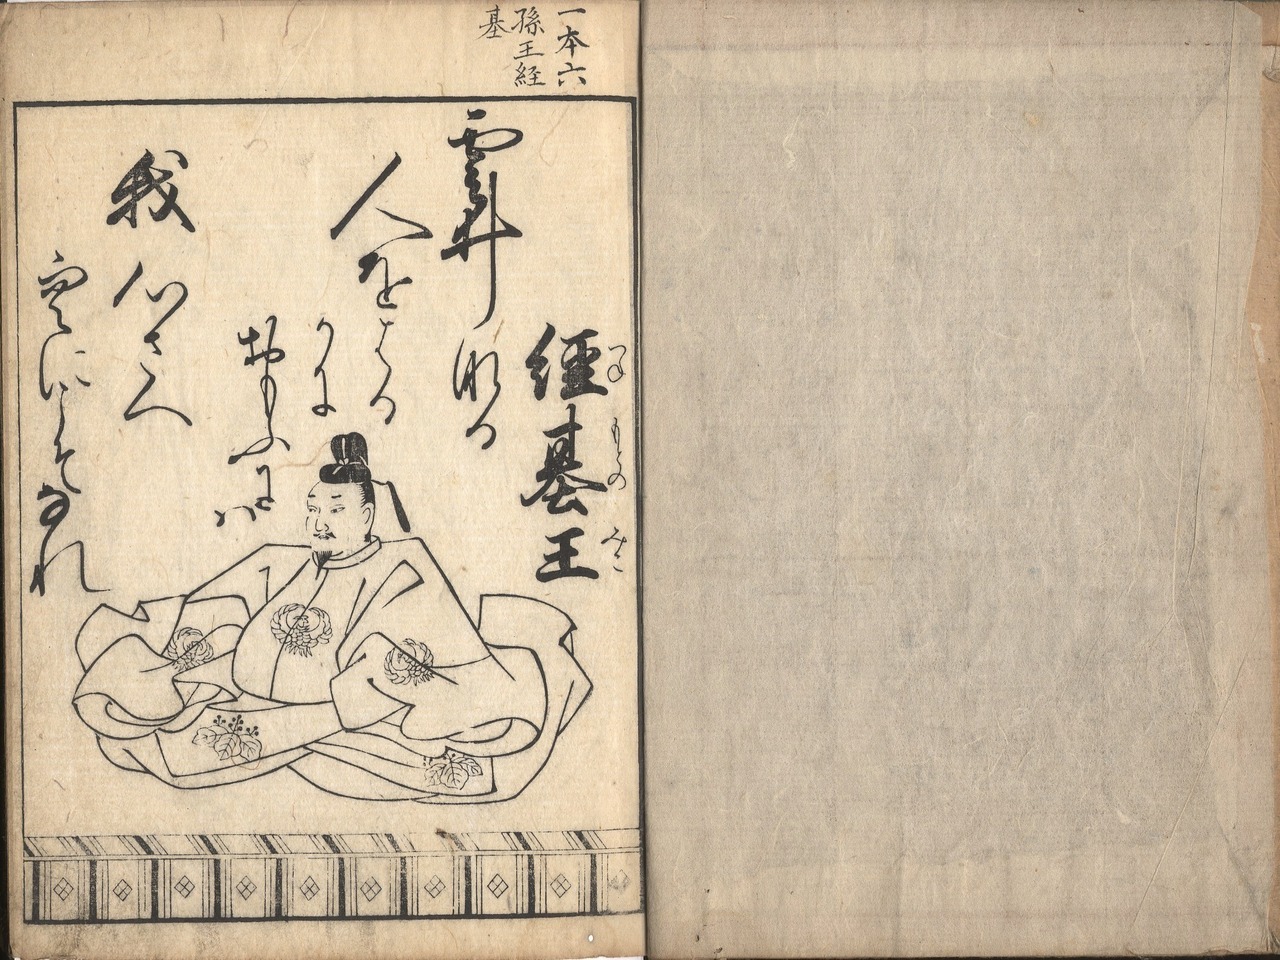 一本六
孫王経
基
經基王
つね もとの みこ
雲井なる
人をはる
かに
おもふには
我心さへ
空にこそなれ